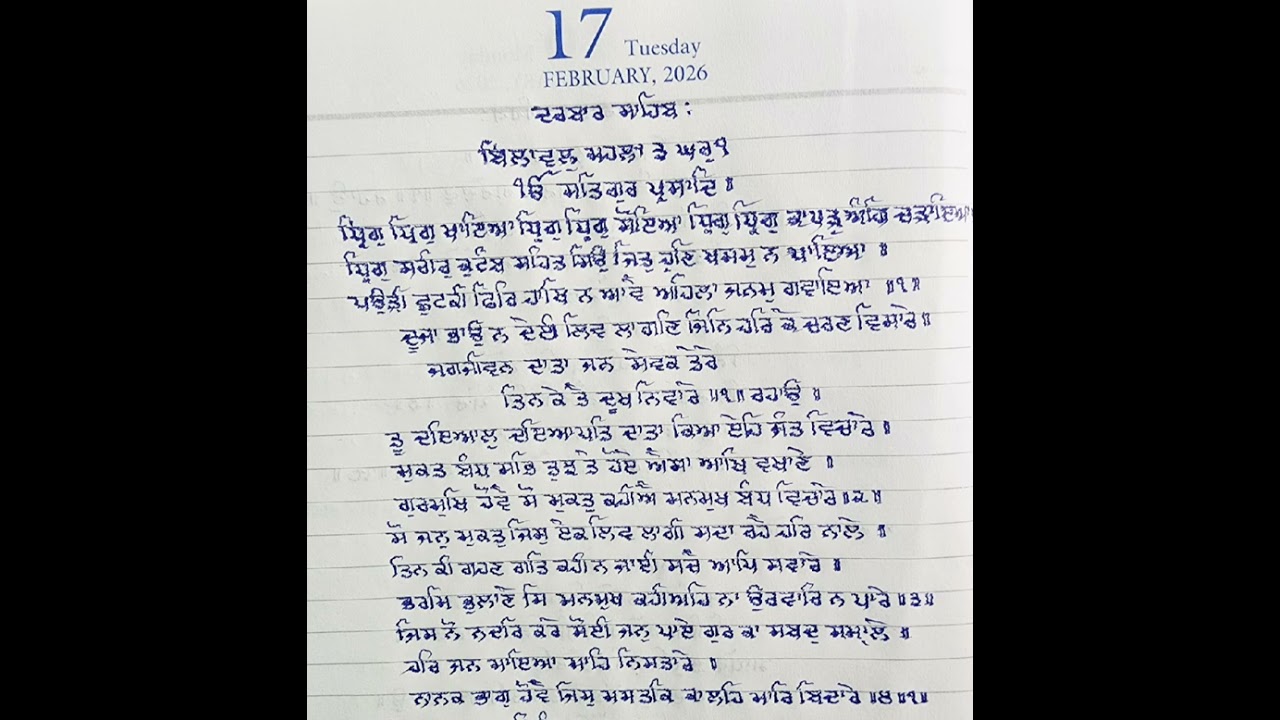 17 Tuesday
FEBRUARY, 2026
ਦਰਬਾਰ ਸਾਹਿਬ:
ਬਿਲਾਵਲੁ ਮਹਲਾ ੩ ਘਰੁ ੧
ੴ ਸਤਿਗੁਰ ਪ੍ਰਸਾਦਿ ॥
ਧ੍ਰਿਗੁ ਧ੍ਰਿਗੁ ਖਾਇਆ ਧ੍ਰਿਗੁ ਧ੍ਰਿਗੁ ਸੋਇਆ ਧ੍ਰਿਗੁ ਧ੍ਰਿਗੁ ਕਾਪੜੁ ਅੰਗਿ ਚੜਾਇਆ
ਧ੍ਰਿਗੁ ਸਰੀਰੁ ਕੁਟੰਬ ਸਹਿਤ ਸਿਉ ਜਿਤੁ ਹੁਣਿ ਖਸਮੁ ਨ ਪਾਇਆ ॥
ਪਉੜੀ ਛੁੜਕੀ ਫਿਰਿ ਹਾਥਿ ਨ ਆਵੈ ਅਹਿਲਾ ਜਨਮੁ ਗਵਾਇਆ ॥੧॥
ਦੂਜਾ ਭਾਉ ਨ ਦੇਈ ਲਿਵ ਲਾਗਣਿ ਜਿਨਿ ਹਰਿ ਕੇ ਚਰਣ ਵਿਸਾਰੇ ॥
ਜਗਜੀਵਨ ਦਾਤਾ ਜਨ ਸੇਵਕ ਤੇਰੇ
ਤਿਨ ਕੇ ਤੈ ਦੂਖ ਨਿਵਾਰੇ ॥੧॥ ਰਹਾਉ ॥
ਤੂ ਦਇਆਲੁ ਦਇਆਪਤਿ ਦਾਤਾ ਕਿਆ ਏਹਿ ਜੰਤ ਵਿਚਾਰੇ ॥
ਮੁਕਤ ਬੰਧ ਸਭਿ ਤੁਝ ਤੇ ਹੋਏ ਐਸਾ ਆਖਿ ਵਖਾਣੇ ॥
ਗੁਰਮੁਖਿ ਹੋਵੈ ਸੋ ਮੁਕਤੁ ਕਹੀਐ ਮਨਮੁਖ ਬੰਧ ਵਿਚਾਰੇ ॥੨॥
ਸੋ ਜਨੁ ਮੁਕਤੁ ਜਿਸੁ ਏਕ ਲਿਵ ਲਾਗੀ ਸਦਾ ਰਹੈ ਹਰਿ ਨਾਲੇ ॥
ਤਿਨ ਕੀ ਗਹਣ ਗਤਿ ਕਹੀ ਨ ਜਾਈ ਸਚੈ ਆਪਿ ਸਵਾਰੇ ॥
ਭਰਮਿ ਭੁਲਾਣੇ ਸਿ ਮਨਮੁਖ ਕਹੀਅਹਿ ਨਾ ਉਰਵਾਰਿ ਨ ਪਾਰੇ ॥੩॥
ਜਿਸ ਨੋ ਨਦਰਿ ਕਰੇ ਸੋਈ ਜਨੁ ਪਾਏ ਗੁਰ ਕਾ ਸਬਦੁ ਸਮ੍ਹਾਲੇ ॥
ਹਰਿ ਜਨ ਮਾਇਆ ਮਾਹਿ ਨਿਸਤਾਰੇ ॥
ਨਾਨਕ ਭਾਗੁ ਹੋਵੈ ਜਿਸੁ ਮਸਤਕਿ ਕਾਲਹਿ ਮਾਰਿ ਬਿਦਾਰੇ ॥੪॥੧॥